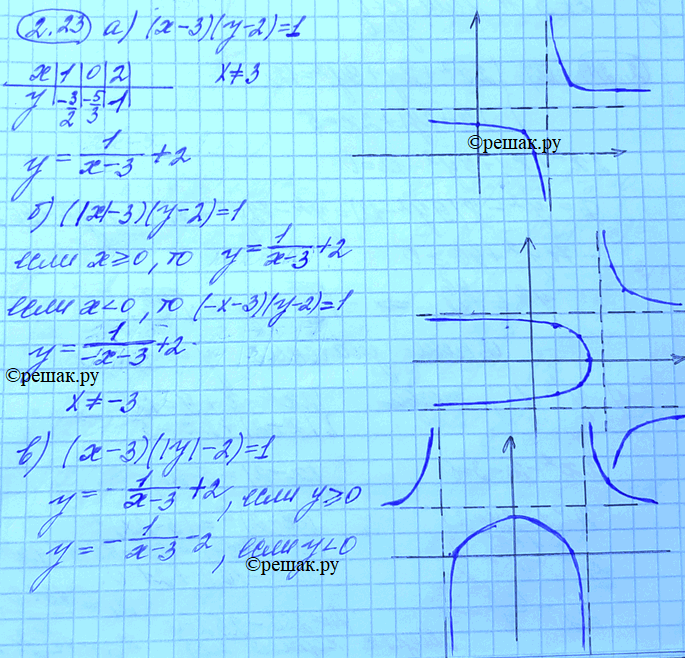 2.23 а) (x-3)(y-2)=1
x | 1 | 0 | 2 |
y | -3/2 | -5/3 | 1 |
x≠3
y = 1/(x-3) + 2
©решак.ру
б) (|x|-3)(y-2)=1
если x≥0, то y = 1/(x-3) + 2
если x<0, то (-x-3)(y-2)=1
y = 1/(-x-3) + 2
©решак.ру
x≠-3
в) (x-3)(|y|-2)=1
y = -1/(x-3) + 2, если y≥0
y = -1/(x-3) - 2, если y<0
©решак.ру